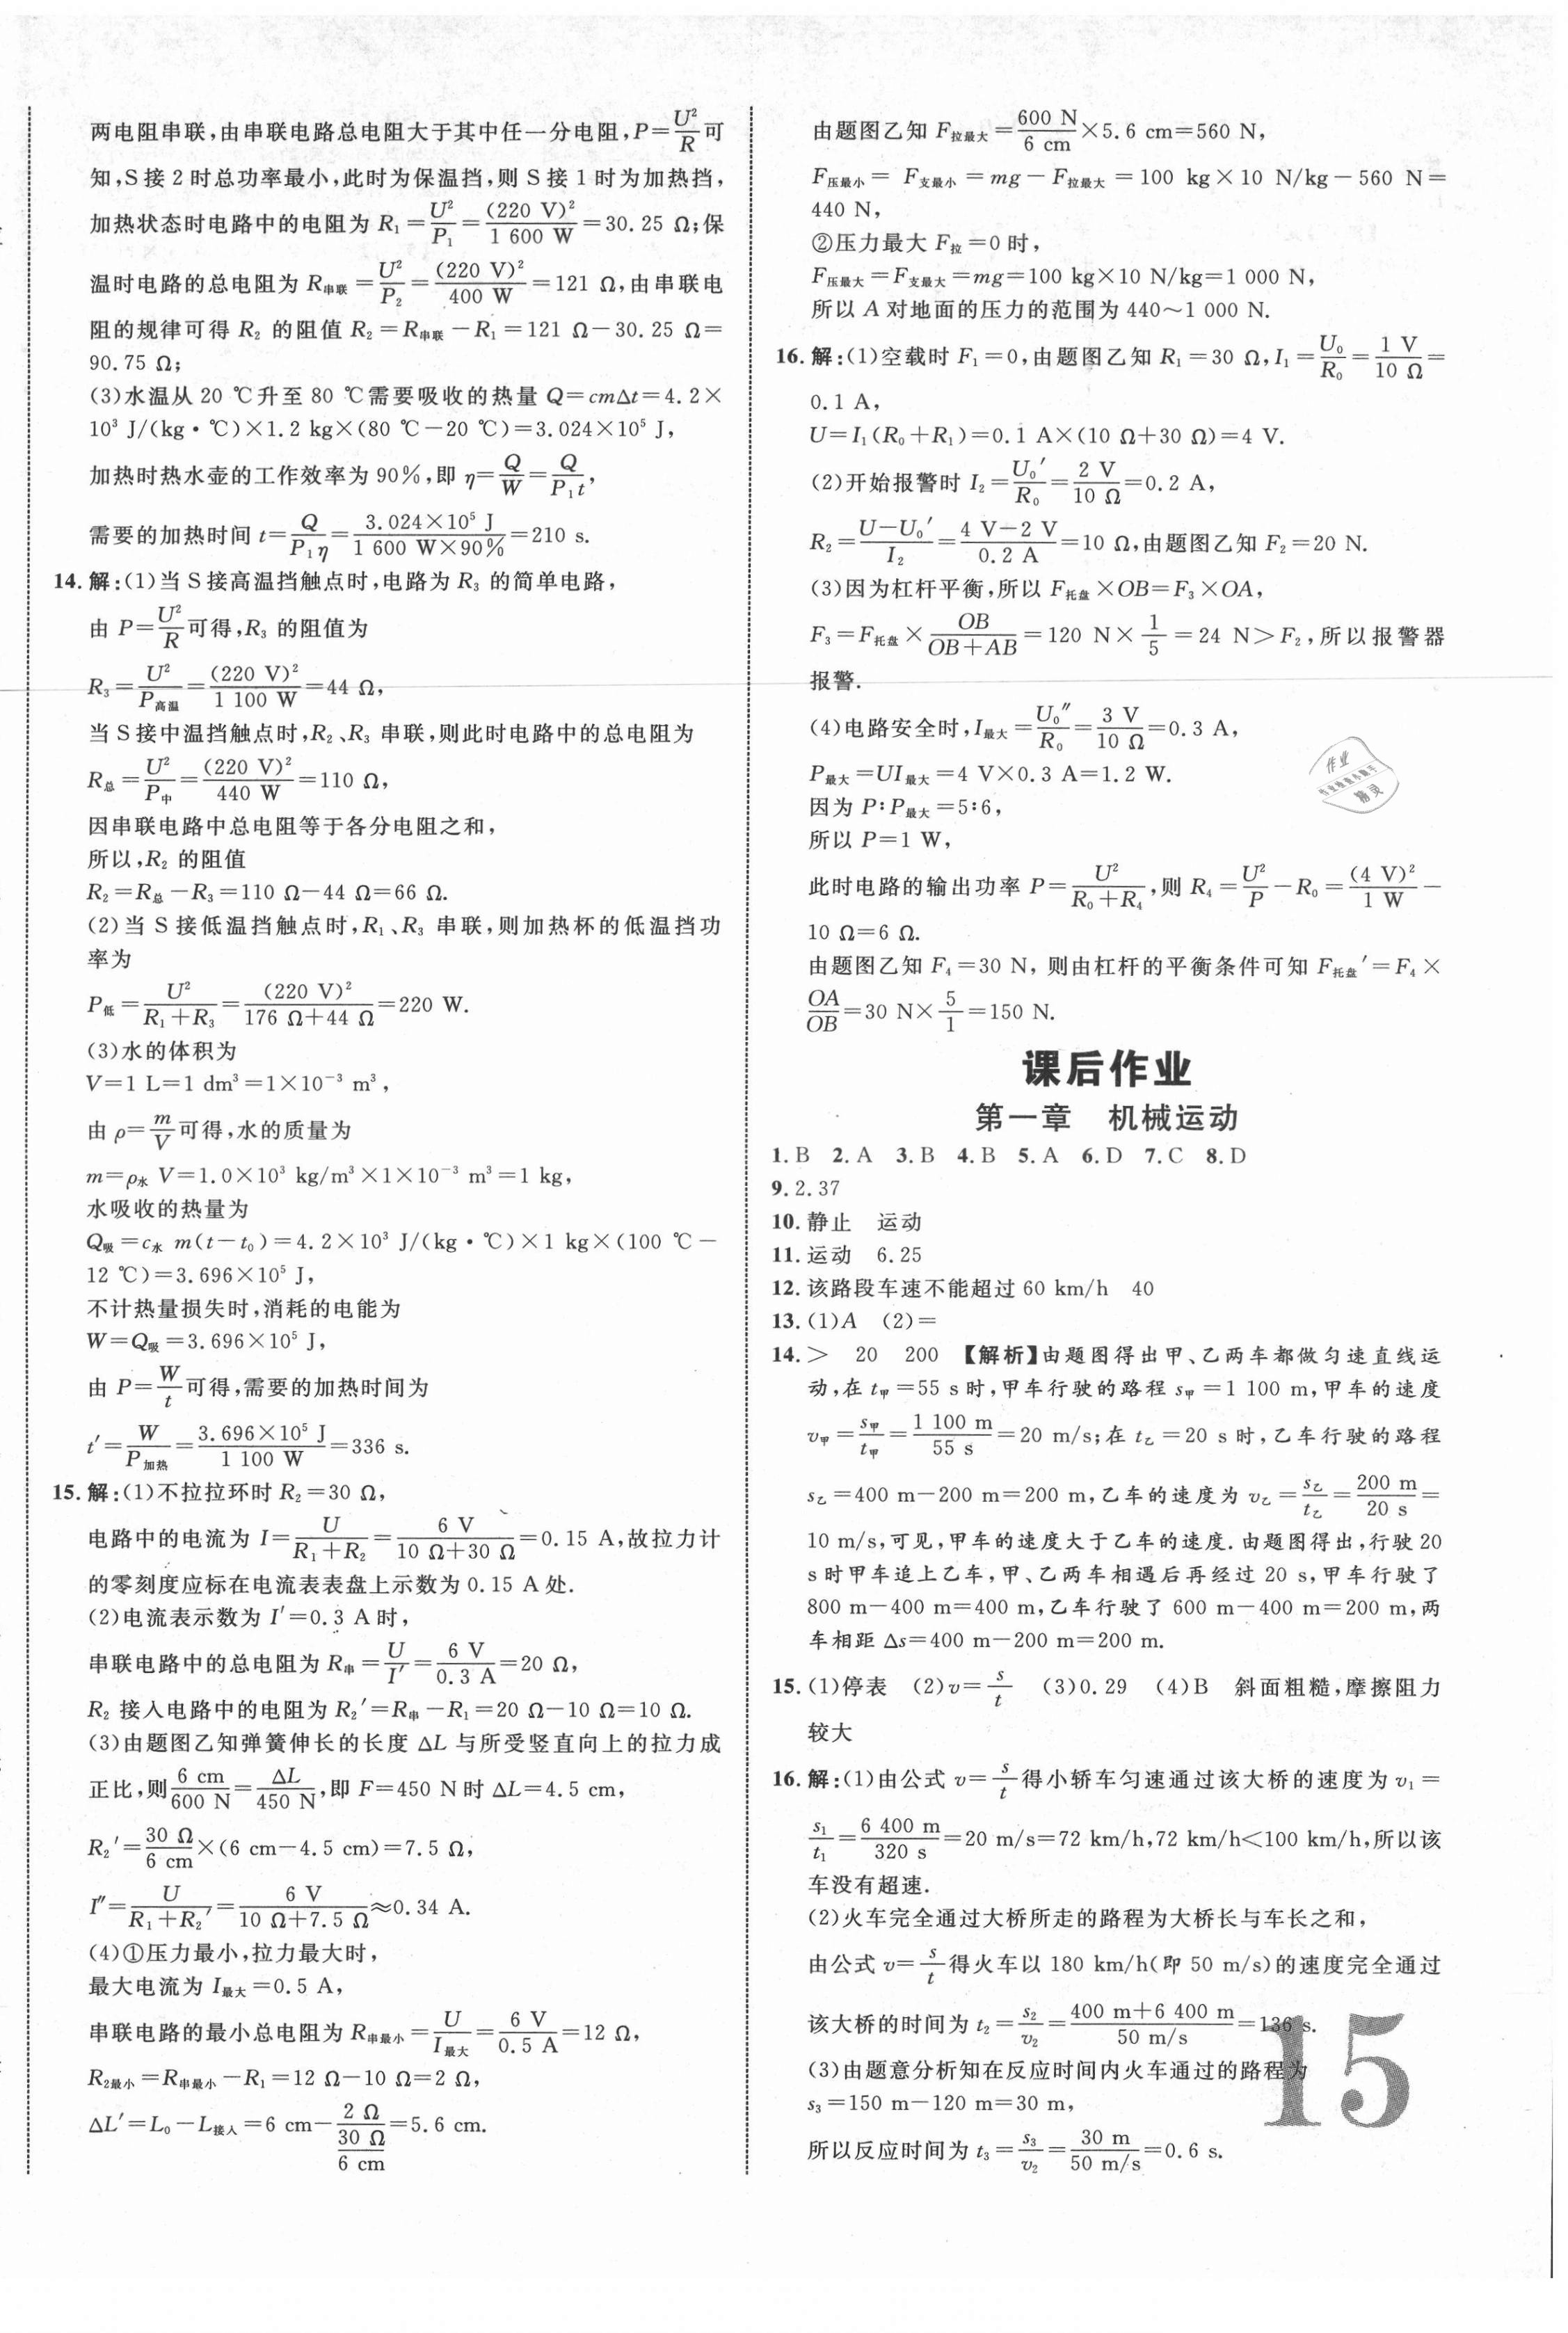 两电阻串联,由串联电路总电阻大于其中任一分电阻,P=U²/R可
知,S接2时总功率最小,此时为保温挡,则S接1时为加热挡,
加热状态时电路中的电阻为R₁=U²/P₁=(220 V)²/1 600 W=30.25 Ω;保
温时电路的总电阻为R串联=U²/P₂=(220 V)²/400 W=121 Ω,由串联电
阻的规律可得R₂的阻值R₂=R串联-R₁=121 Ω-30.25 Ω=
90.75 Ω;
(3)水温从20 ℃升至80 ℃需要吸收的热量Q=cmΔt=4.2×
10³ J/(kg·℃)×1.2 kg×(80 ℃-20 ℃)=3.024×10⁵ J,
加热时热水壶的工作效率为90%,即η=Q/W=Q/P₁t,
需要的加热时间t=Q/P₁η=3.024×10⁵ J/1 600 W×90%=210 s.
14.解:(1)当S接高温挡触点时,电路为R₃的简单电路,
由P=U²/R可得,R₃的阻值为
R₃=U²/P高温=(220 V)²/1 100 W=44 Ω,
当S接中温挡触点时,R₂、R₃串联,则此时电路中的总电阻为
R总=U²/P中=(220 V)²/440 W=110 Ω,
因串联电路中总电阻等于各分电阻之和,
所以,R₂的阻值
R₂=R总-R₃=110 Ω-44 Ω=66 Ω.
(2)当S接低温挡触点时,R₁、R₃串联,则加热杯的低温挡功
率为
P低=U²/(R₁+R₃)=(220 V)²/(176 Ω+44 Ω)=220 W.
(3)水的体积为
V=1 L=1 dm³=1×10⁻³ m³,
由ρ=m/V可得,水的质量为
m=ρ水V=1.0×10³ kg/m³×1×10⁻³ m³=1 kg,
水吸收的热量为
Q吸=c水m(t-t₀)=4.2×10³ J/(kg·℃)×1 kg×(100 ℃-
12 ℃)=3.696×10⁵ J,
不计热量损失时,消耗的电能为
W=Q吸=3.696×10⁵ J,
由P=W/t可得,需要的加热时间为
t′=W/P加热=3.696×10⁵ J/1 100 W=336 s.
15.解:(1)不拉拉环时R₂=30 Ω,
电路中的电流为I=U/(R₁+R₂)=6 V/(10 Ω+30 Ω)=0.15 A,故拉力计
的零刻度应标在电流表表盘上示数为0.15 A处.
(2)电流表示数为I′=0.3 A时,
串联电路中的总电阻为R串=U/I′=6 V/0.3 A=20 Ω,
R₂接入电路中的电阻为R₂′=R串-R₁=20 Ω-10 Ω=10 Ω.
(3)由题图乙知弹簧伸长的长度ΔL与所受竖直向上的拉力成
正比,则6 cm/600 N=ΔL/450 N,即F=450 N时ΔL=4.5 cm,
R₂′=30 Ω/6 cm×(6 cm-4.5 cm)=7.5 Ω,
I″=U/(R₁+R₂′)=6 V/(10 Ω+7.5 Ω)≈0.34 A.
(4)①压力最小,拉力最大时,
最大电流为I最大=0.5 A,
串联电路的最小总电阻为R串最小=U/I最大=6 V/0.5 A=12 Ω,
R₂最小=R串最小-R₁=12 Ω-10 Ω=2 Ω,
ΔL′=L₀-L接入=6 cm-2 Ω/(30 Ω/6 cm)=5.6 cm.
由题图乙知F拉最大=600 N/6 cm×5.6 cm=560 N,
F压最小=F支最小=mg-F拉最大=100 kg×10 N/kg-560 N=
440 N,
②压力最大F拉=0时,
F压最大=F支最大=mg=100 kg×10 N/kg=1 000 N,
所以A对地面的压力的范围为440~1 000 N.
16.解:(1)空载时F₁=0,由题图乙知R₁=30 Ω,I₁=U₀/R₀=1 V/10 Ω=
0.1 A,
U=I₁(R₀+R₁)=0.1 A×(10 Ω+30 Ω)=4 V.
(2)开始报警时I₂=U₀′/R₀=2 V/10 Ω=0.2 A,
R₂=(U-U₀′)/I₂=(4 V-2 V)/0.2 A=10 Ω,由题图乙知F₂=20 N.
(3)因为杠杆平衡,所以F托盘×OB=F₃×OA,
F₃=F托盘×OB/(OB+AB)=120 N×1/5=24 N>F₂,所以报警器
报警.
(4)电路安全时,I最大=U₀″/R₀=3 V/10 Ω=0.3 A,
P最大=UI最大=4 V×0.3 A=1.2 W.
因为P∶P最大=5∶6,
所以P=1 W,
此时电路的输出功率P=U²/(R₀+R₄),则R₄=U²/P-R₀=(4 V)²/1 W-
10 Ω=6 Ω.
由题图乙知F₄=30 N,则由杠杆的平衡条件可知F托盘′=F₄×
OA/OB=30 N×5/1=150 N.
作业
精灵
课后作业
第一章 机械运动
1.B 2.A 3.B 4.B 5.A 6.D 7.C 8.D
9.2.37
10.静止 运动
11.运动 6.25
12.该路段车速不能超过60 km/h 40
13.(1)A (2)=
14.> 20 200 【解析】由题图得出甲、乙两车都做匀速直线运
动,在t甲=55 s时,甲车行驶的路程s甲=1 100 m,甲车的速度
v甲=s甲/t甲=1 100 m/55 s=20 m/s;在t乙=20 s时,乙车行驶的路程
s乙=400 m-200 m=200 m,乙车的速度为v乙=s乙/t乙=200 m/20 s=
10 m/s,可见,甲车的速度大于乙车的速度.由题图得出,行驶20
s时甲车追上乙车,甲、乙两车相遇后再经过20 s,甲车行驶了
800 m-400 m=400 m,乙车行驶了600 m-400 m=200 m,两
车相距Δs=400 m-200 m=200 m.
15.(1)停表 (2)v=s/t (3)0.29 (4)B 斜面粗糙,摩擦阻力
较大
16.解:(1)由公式v=s/t得小轿车匀速通过该大桥的速度为v₁=
s₁/t₁=6 400 m/320 s=20 m/s=72 km/h,72 km/h<100 km/h,所以该
车没有超速.
(2)火车完全通过大桥所走的路程为大桥长与车长之和,
由公式v=s/t得火车以180 km/h(即50 m/s)的速度完全通过
该大桥的时间为t₂=s₂/v₂=(400 m+6 400 m)/50 m/s=136 s.
(3)由题意分析知在反应时间内火车通过的路程为
s₃=150 m-120 m=30 m,
所以反应时间为t₃=s₃/v₂=30 m/50 m/s=0.6 s.
15